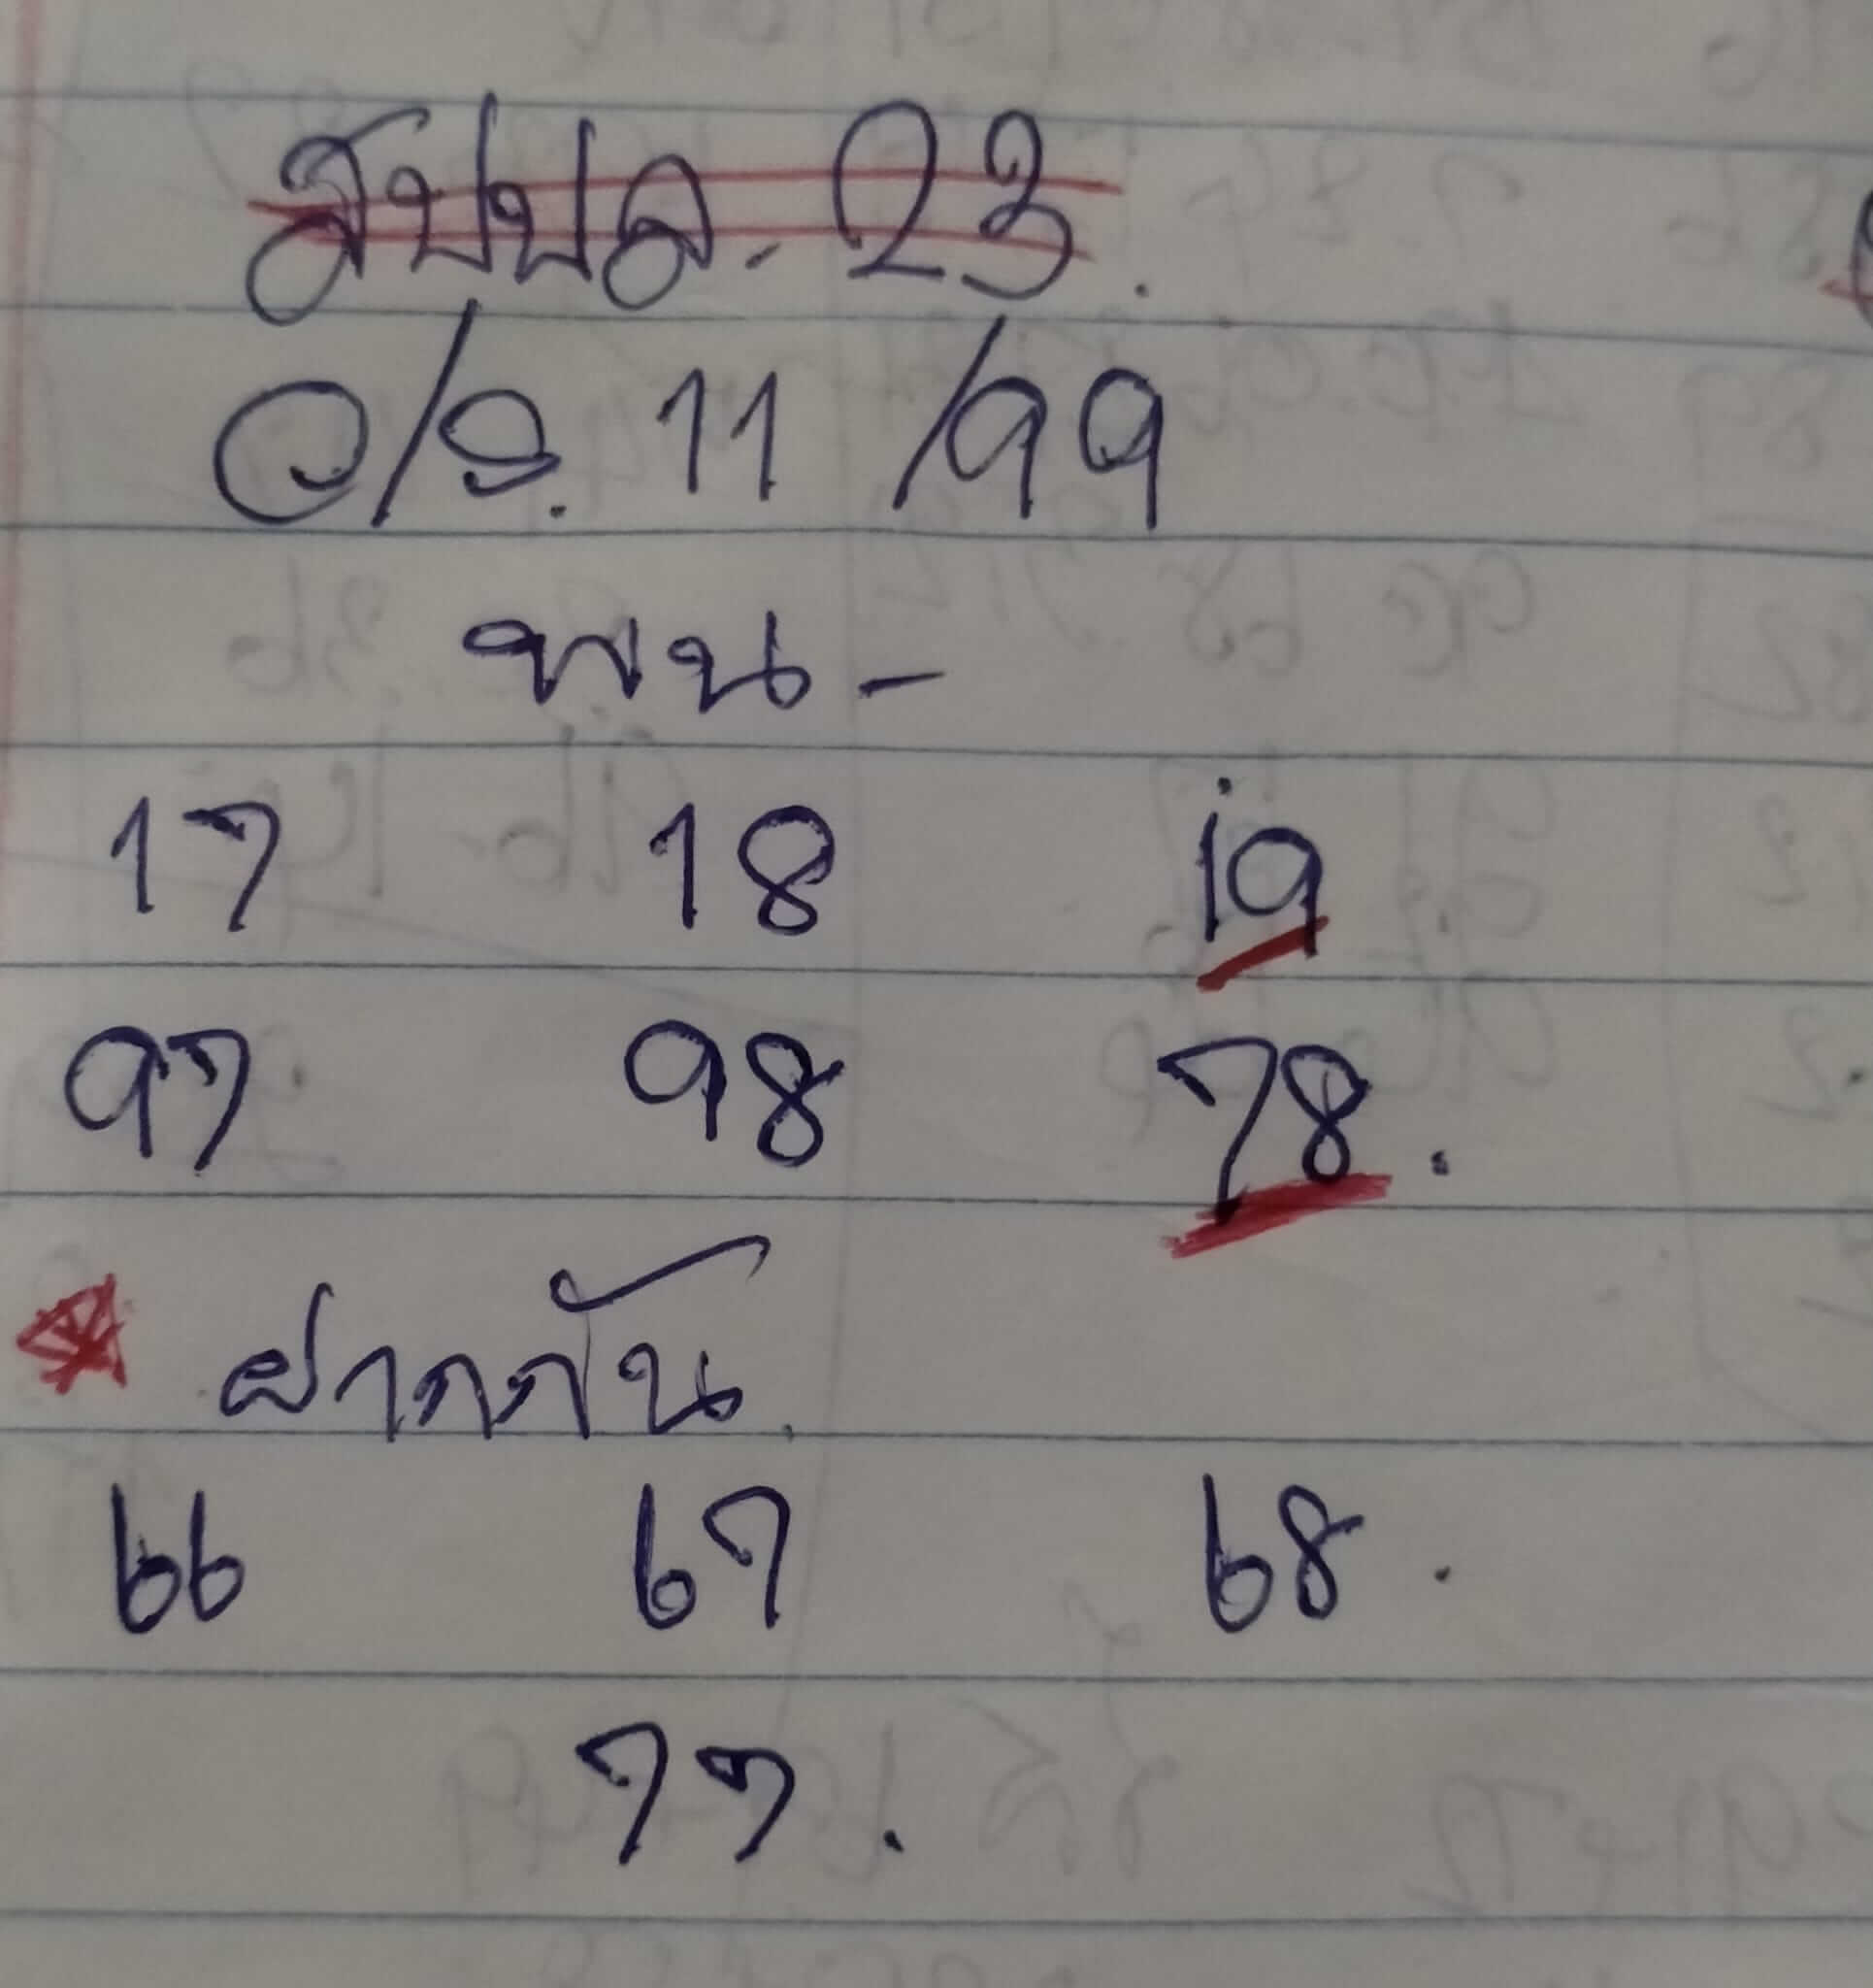 สปปล. 23.
อ/ธ. 11 /99
พน-
17 18 19
97 98 78.
ฝากกัน.
66 67 68.
77.